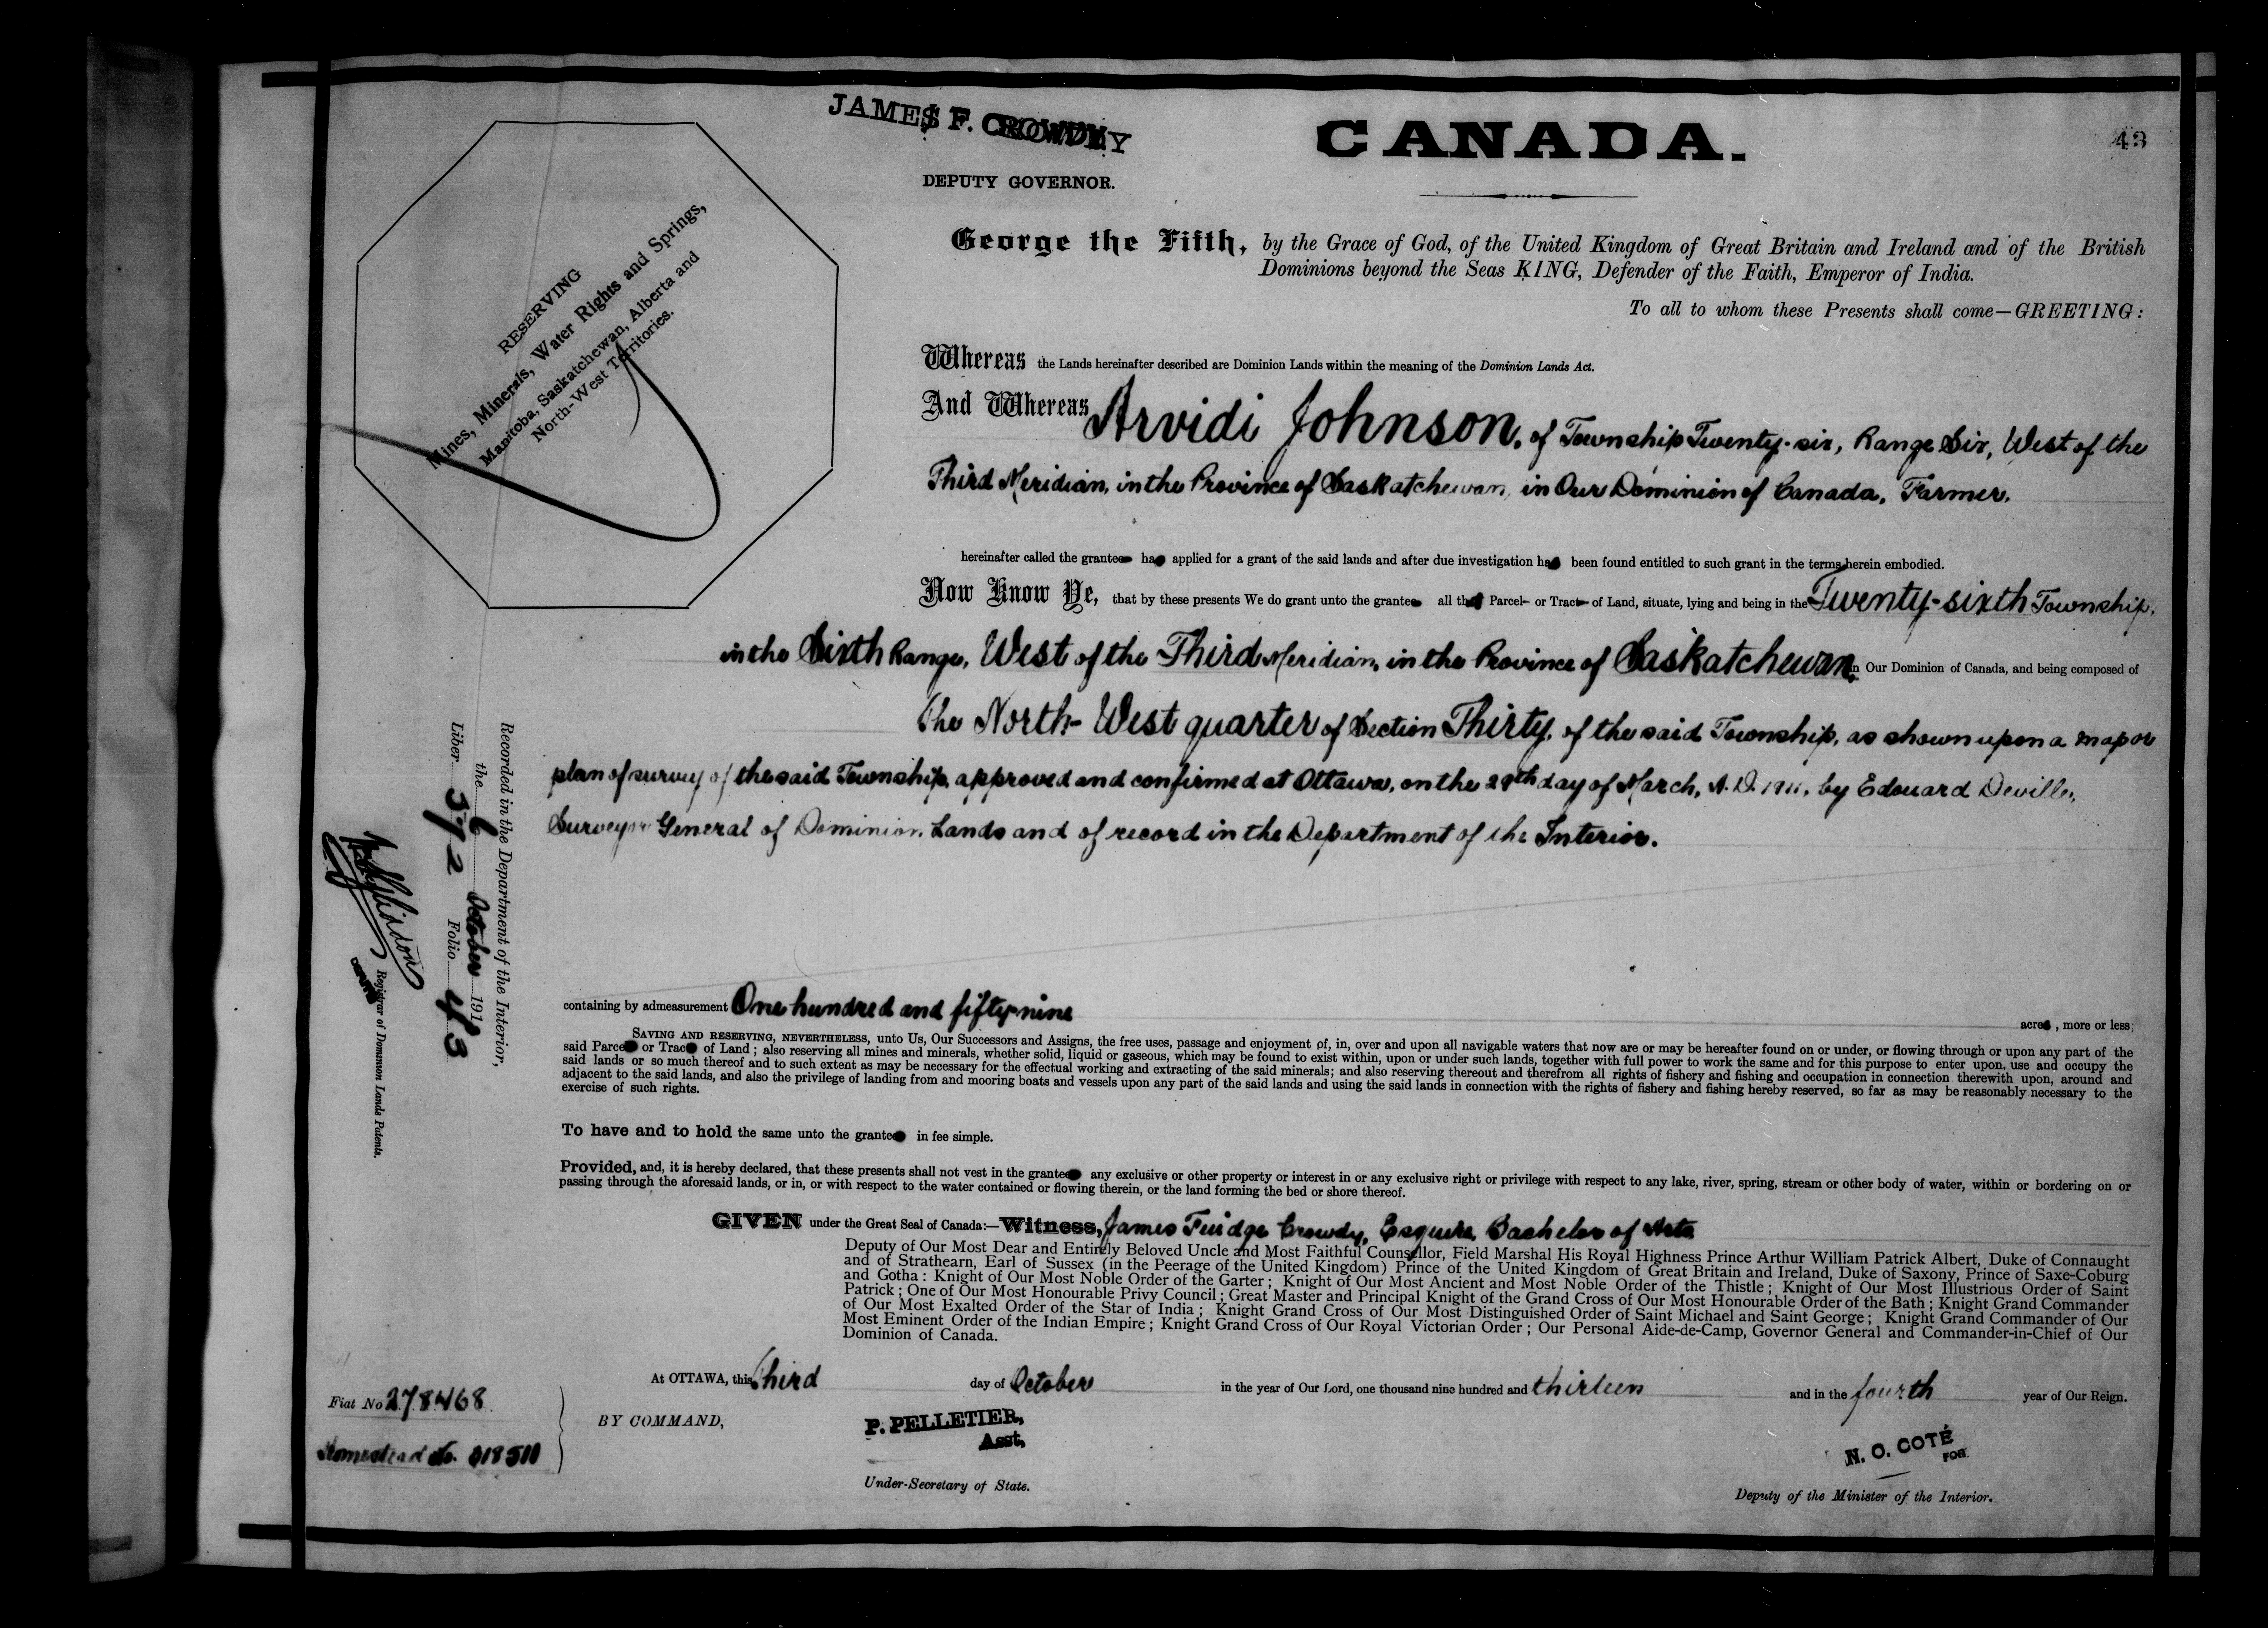 JAMES F. CROWDY
DEPUTY GOVERNOR.
CANADA.
43
RESERVING
Mines, Minerals, Water Rights and Springs,
Manitoba, Saskatchewan, Alberta and
North-West Territories.
George the Fifth, by the Grace of God, of the United Kingdom of Great Britain and Ireland and of the British
Dominions beyond the Seas KING, Defender of the Faith, Emperor of India.
To all to whom these Presents shall come—GREETING:
Whereas the Lands hereinafter described are Dominion Lands within the meaning of the Dominion Lands Act.
And Whereas Arvidi Johnson, of Township Twenty-six, Range Six, West of the
Third Meridian, in the Province of Saskatchewan, in Our Dominion of Canada, Farmer,
hereinafter called the grantee has applied for a grant of the said lands and after due investigation has been found entitled to such grant in the terms herein embodied.
Now Know Ye, that by these presents We do grant unto the grantee all that Parcel or Tract of Land, situate, lying and being in the Twenty-sixth Township,
in the Sixth Range, West of the Third Meridian, in the Province of Saskatchewan, in Our Dominion of Canada, and being composed of
the North-West quarter of Section Thirty, of the said Township, as shown upon a map or
plan of survey of the said Township, approved and confirmed at Ottawa, on the 29th day of March, A.D. 1911, by Edouard Deville,
Surveyor General of Dominion Lands and of record in the Department of the Interior.
Recorded in the Department of the Interior,
the 6 October 191
Liber 372 Folio 43
Registrar of Dominion Lands Patents.
containing by admeasurement One hundred and fifty-nine acres, more or less;
SAVING AND RESERVING, NEVERTHELESS, unto Us, Our Successors and Assigns, the free uses, passage and enjoyment of, in, over and upon all navigable waters that now are or may be hereafter found on or under, or flowing through or upon any part of the
said Parcel or Tract of Land; also reserving all mines and minerals, whether solid, liquid or gaseous, which may be found to exist within, upon or under such lands, together with full power to work the same and for this purpose to enter upon, use and occupy the
said lands or so much thereof and to such extent as may be necessary for the effectual working and extracting of the said minerals; and also reserving thereout and therefrom all rights of fishery and fishing and occupation in connection therewith upon, around and
adjacent to the said lands, and also the privilege of landing from and mooring boats and vessels upon any part of the said lands and using the said lands in connection with the rights of fishery and fishing hereby reserved, so far as may be reasonably necessary to the
exercise of such rights.
To have and to hold the same unto the grantee in fee simple.
Provided, and, it is hereby declared, that these presents shall not vest in the grantee any exclusive or other property or interest in or any exclusive right or privilege with respect to any lake, river, spring, stream or other body of water, within or bordering on or
passing through the aforesaid lands, or in, or with respect to the water contained or flowing therein, or the land forming the bed or shore thereof.
GIVEN under the Great Seal of Canada:—Witness, James Fuidge Crowdy, Esquire, Bachelor of Arts
Deputy of Our Most Dear and Entirely Beloved Uncle and Most Faithful Counsellor, Field Marshal His Royal Highness Prince Arthur William Patrick Albert, Duke of Connaught
and of Strathearn, Earl of Sussex (in the Peerage of the United Kingdom) Prince of the United Kingdom of Great Britain and Ireland, Duke of Saxony, Prince of Saxe-Coburg
and Gotha: Knight of Our Most Noble Order of the Garter; Knight of Our Most Ancient and Most Noble Order of the Thistle; Knight of Our Most Illustrious Order of Saint
Patrick; One of Our Most Honourable Privy Council; Great Master and Principal Knight of the Grand Cross of Our Most Honourable Order of the Bath; Knight Grand Commander
of Our Most Exalted Order of the Star of India; Knight Grand Cross of Our Most Distinguished Order of Saint Michael and Saint George; Knight Grand Commander of Our
Most Eminent Order of the Indian Empire; Knight Grand Cross of Our Royal Victorian Order; Our Personal Aide-de-Camp, Governor General and Commander-in-Chief of Our
Dominion of Canada.
At OTTAWA, this third day of October in the year of Our Lord, one thousand nine hundred and thirteen and in the fourth year of Our Reign.
Fiat No 278468
Homestead No.
BY COMMAND,
P. PELLETIER,
Asst.
Under-Secretary of State.
N. O. COTÉ
FOR
Deputy of the Minister of the Interior.